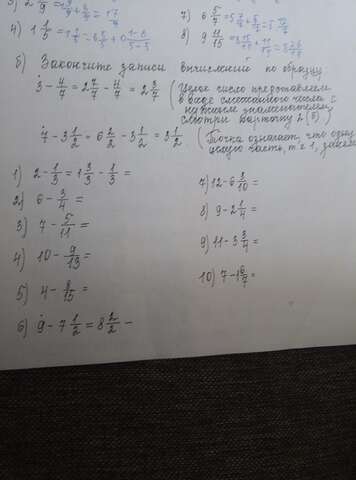 4) 1 1/5 =
7) 6 5/7 =
8) 9 11/15 =
б) Закончите записи вычислений по образцу
3 - 4/7 = 2 7/7 - 4/7 = 2 3/7
(Целое число представляем
в виде смешанного числа с
нужным знаменателем,
смотри карточку 2(б).)
7 - 3 1/2 = 6 2/2 - 3 1/2 = 3 1/2
(Точка означает, что одну
целую часть, т.е 1,
1) 2 - 1/3 = 1 3/3 - 1/3 =
2) 6 - 3/4 =
3) 7 - 5/11 =
4) 10 - 9/13 =
5) 4 - 8/15 =
6) 9 - 7 1/2 = 8 2/2 -
7) 12 - 6 3/10 =
8) 9 - 2 1/4 =
9) 11 - 3 3/4 =
10) 7 - 1 6/7 =